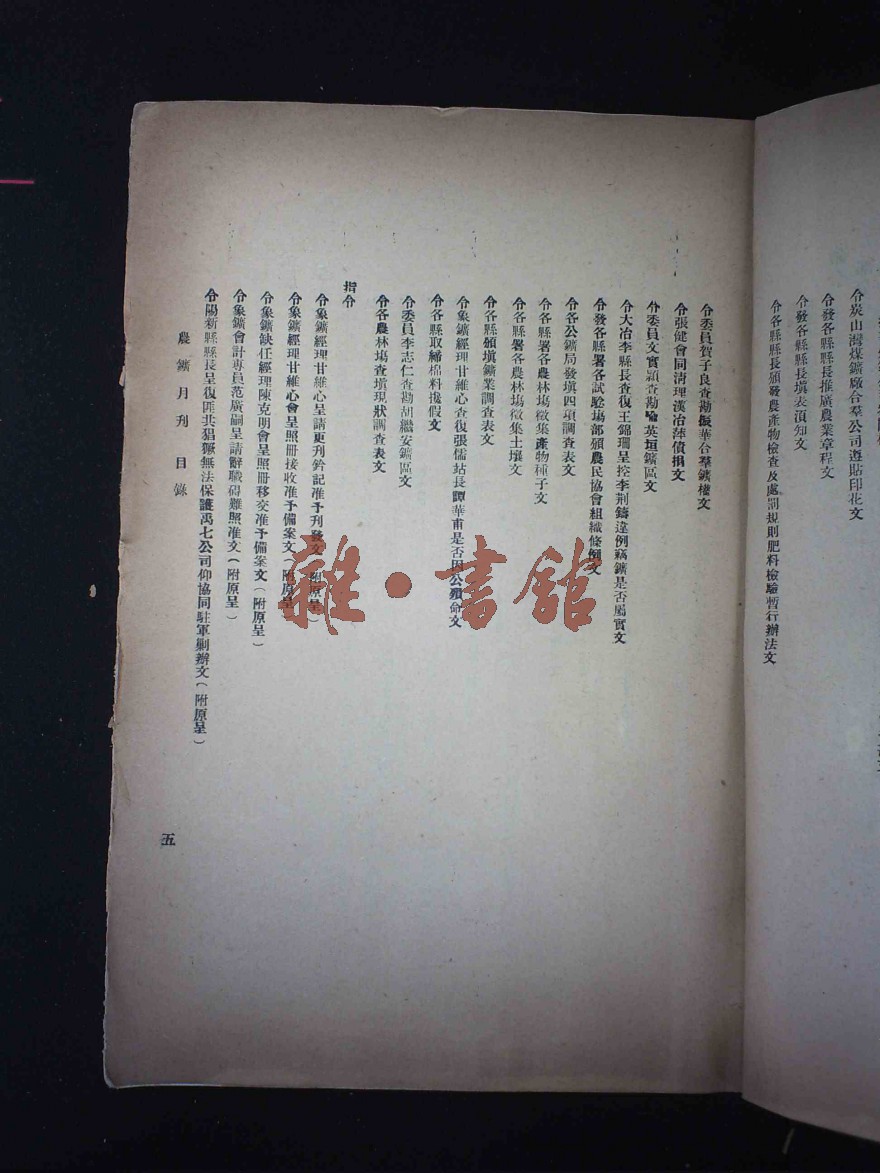 令炭山灣煤鑛廠合羣公司遵貼印花文
令發各縣縣長推廣農業章程文
令發各縣縣長填表須知文
令各縣縣長頒發農產物檢查及處罰規則肥料檢驗暫行辦法文
令委員賀子良查勘振華合羣鑛權文
令張健會同淸理漢冶萍債捐文
令委員文實穎查勘喻英垣鑛區文
令大冶李縣長查復王錦珊呈控李荆鑄違例竊鑛是否屬實文
令發各縣署各試驗塲部頒農民協會組織條例文
令各公鑛局發填四項調查表文
令各縣署各農林塲徵集產物種子文
令各縣署各農林塲徵集土壤文
令各縣頒填鑛業調查表文
令象鑛經理甘維心查復張儒站長譚華甫是否因公殞命文
令各縣取締棉料攙假文
令委員李志仁查勘胡繼安鑛區文
令各農林塲查填現狀調查表文
指令
令象鑛經理甘維心呈請更刋鈐記准予刋發文(附原呈)
令象鑛經理甘維心會呈照冊接收准予備案文(附原呈)
令象鑛缺任經理陳克明會呈照冊移交准予備案文(附原呈)
令象鑛會計專員范廣嗣呈請辭職碍難照准文(附原呈)
令陽新縣縣長呈復匪共猖獗無法保護禹七公司仰協同駐軍剿辦文(附原呈)
農鑛月刊目錄
五
雜·書館